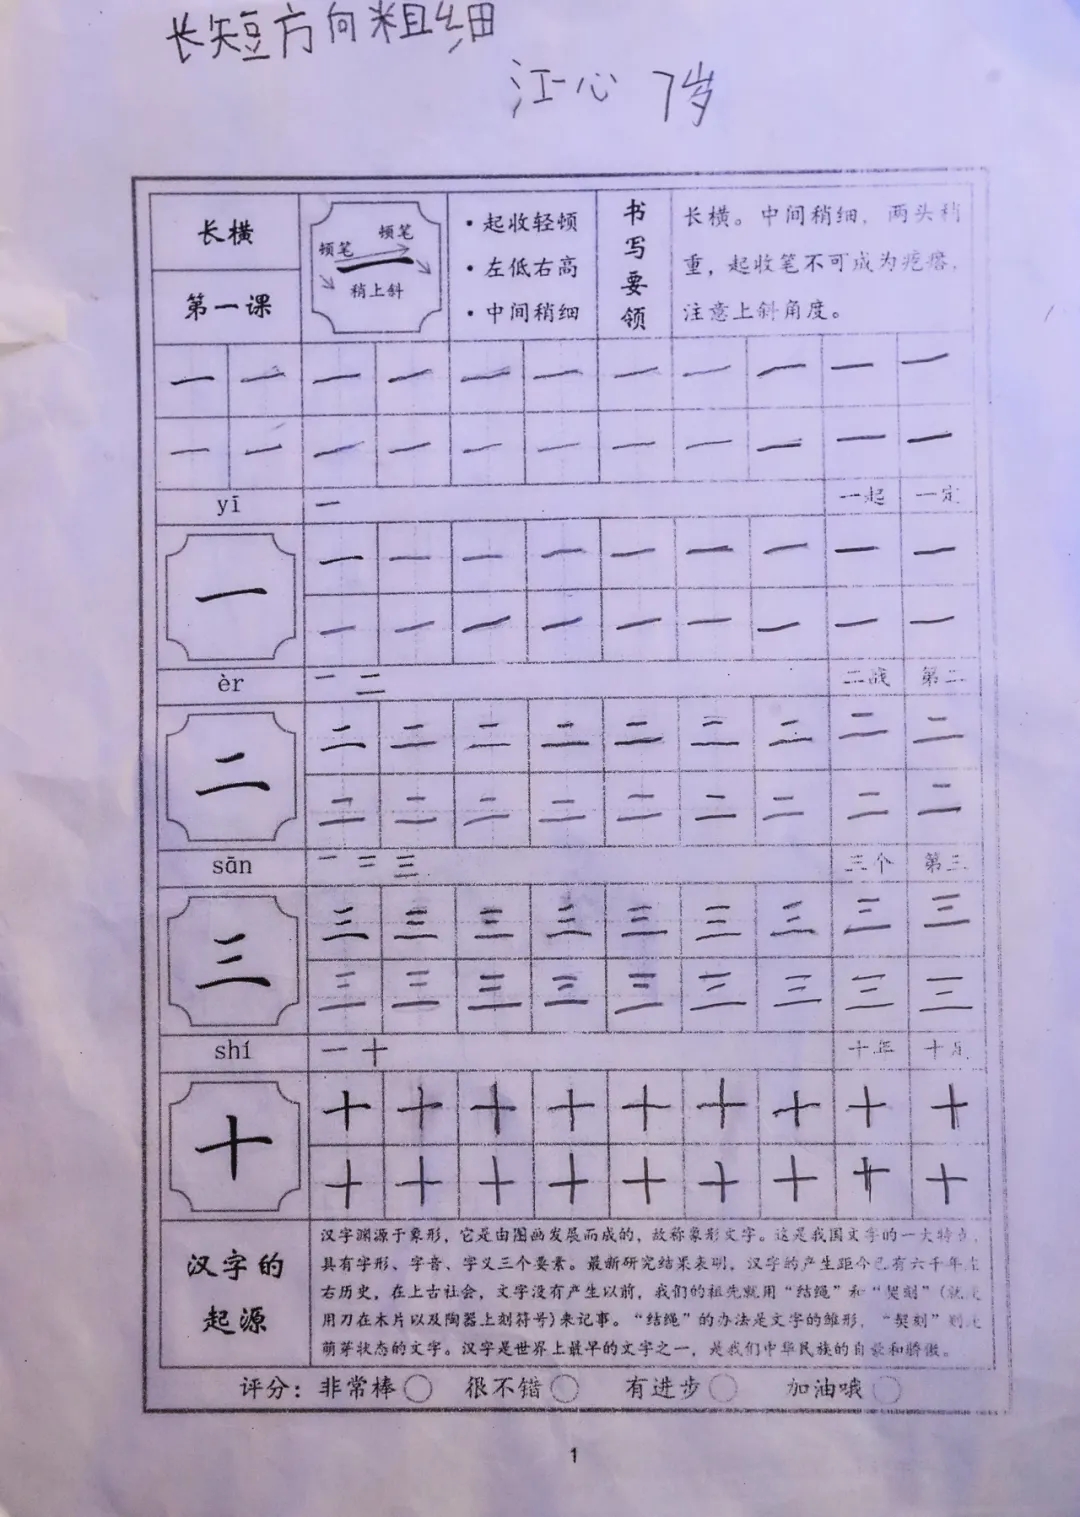 长短方向粗细
江一心 7岁
长横
第一课
顿笔 顿笔
稍上斜
·起收轻顿
·左低右高
·中间稍细
书写要领
长横。中间稍细，两头稍
重，起收笔不可成为疙瘩，
注意上斜角度。
一 一 一 一 一 一 一 一 一 一 一
一 一 一 一 一 一 一 一 一 一 一
yī 一 一起 一定
一
一 一 一 一 一 一 一 一 一
一 一 一 一 一 一 一 一 一
èr 一 二 二战 第二
二
二 二 二 二 二 二 二 二 二
二 二 二 二 二 二 二 二 二
sān 一 二 三 三个 第三
三
三 三 三 三 三 三 三 三 三
三 三 三 三 三 三 三 三 三
shí 一 十 十年 十
十
十 十 十 十 十 十 十 十 十
十 十 十 十 十 十 十 十
汉字的
起源
汉字渊源于象形，它是由图画发展而成的，故称象形文字。这是我国文字的一大特点，
具有字形、字音、字义三个要素。最新研究结果表明，汉字的产生距今已有六千年左
右历史，在上古社会，文字没有产生以前，我们的祖先就用“结绳”和“契刻”(就是
用刀在木片以及陶器上刻符号)来记事。“结绳”的办法是文字的雏形，“契刻”则是
萌芽状态的文字。汉字是世界上最早的文字之一，是我们中华民族的自豪和骄傲。
评分：非常棒 很不错 有进步 加油哦
1